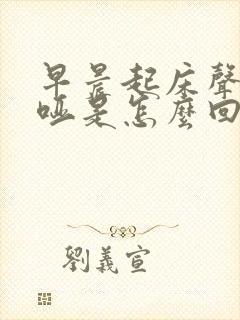 早晨起床聲
啞是怎麼回
劉義宣